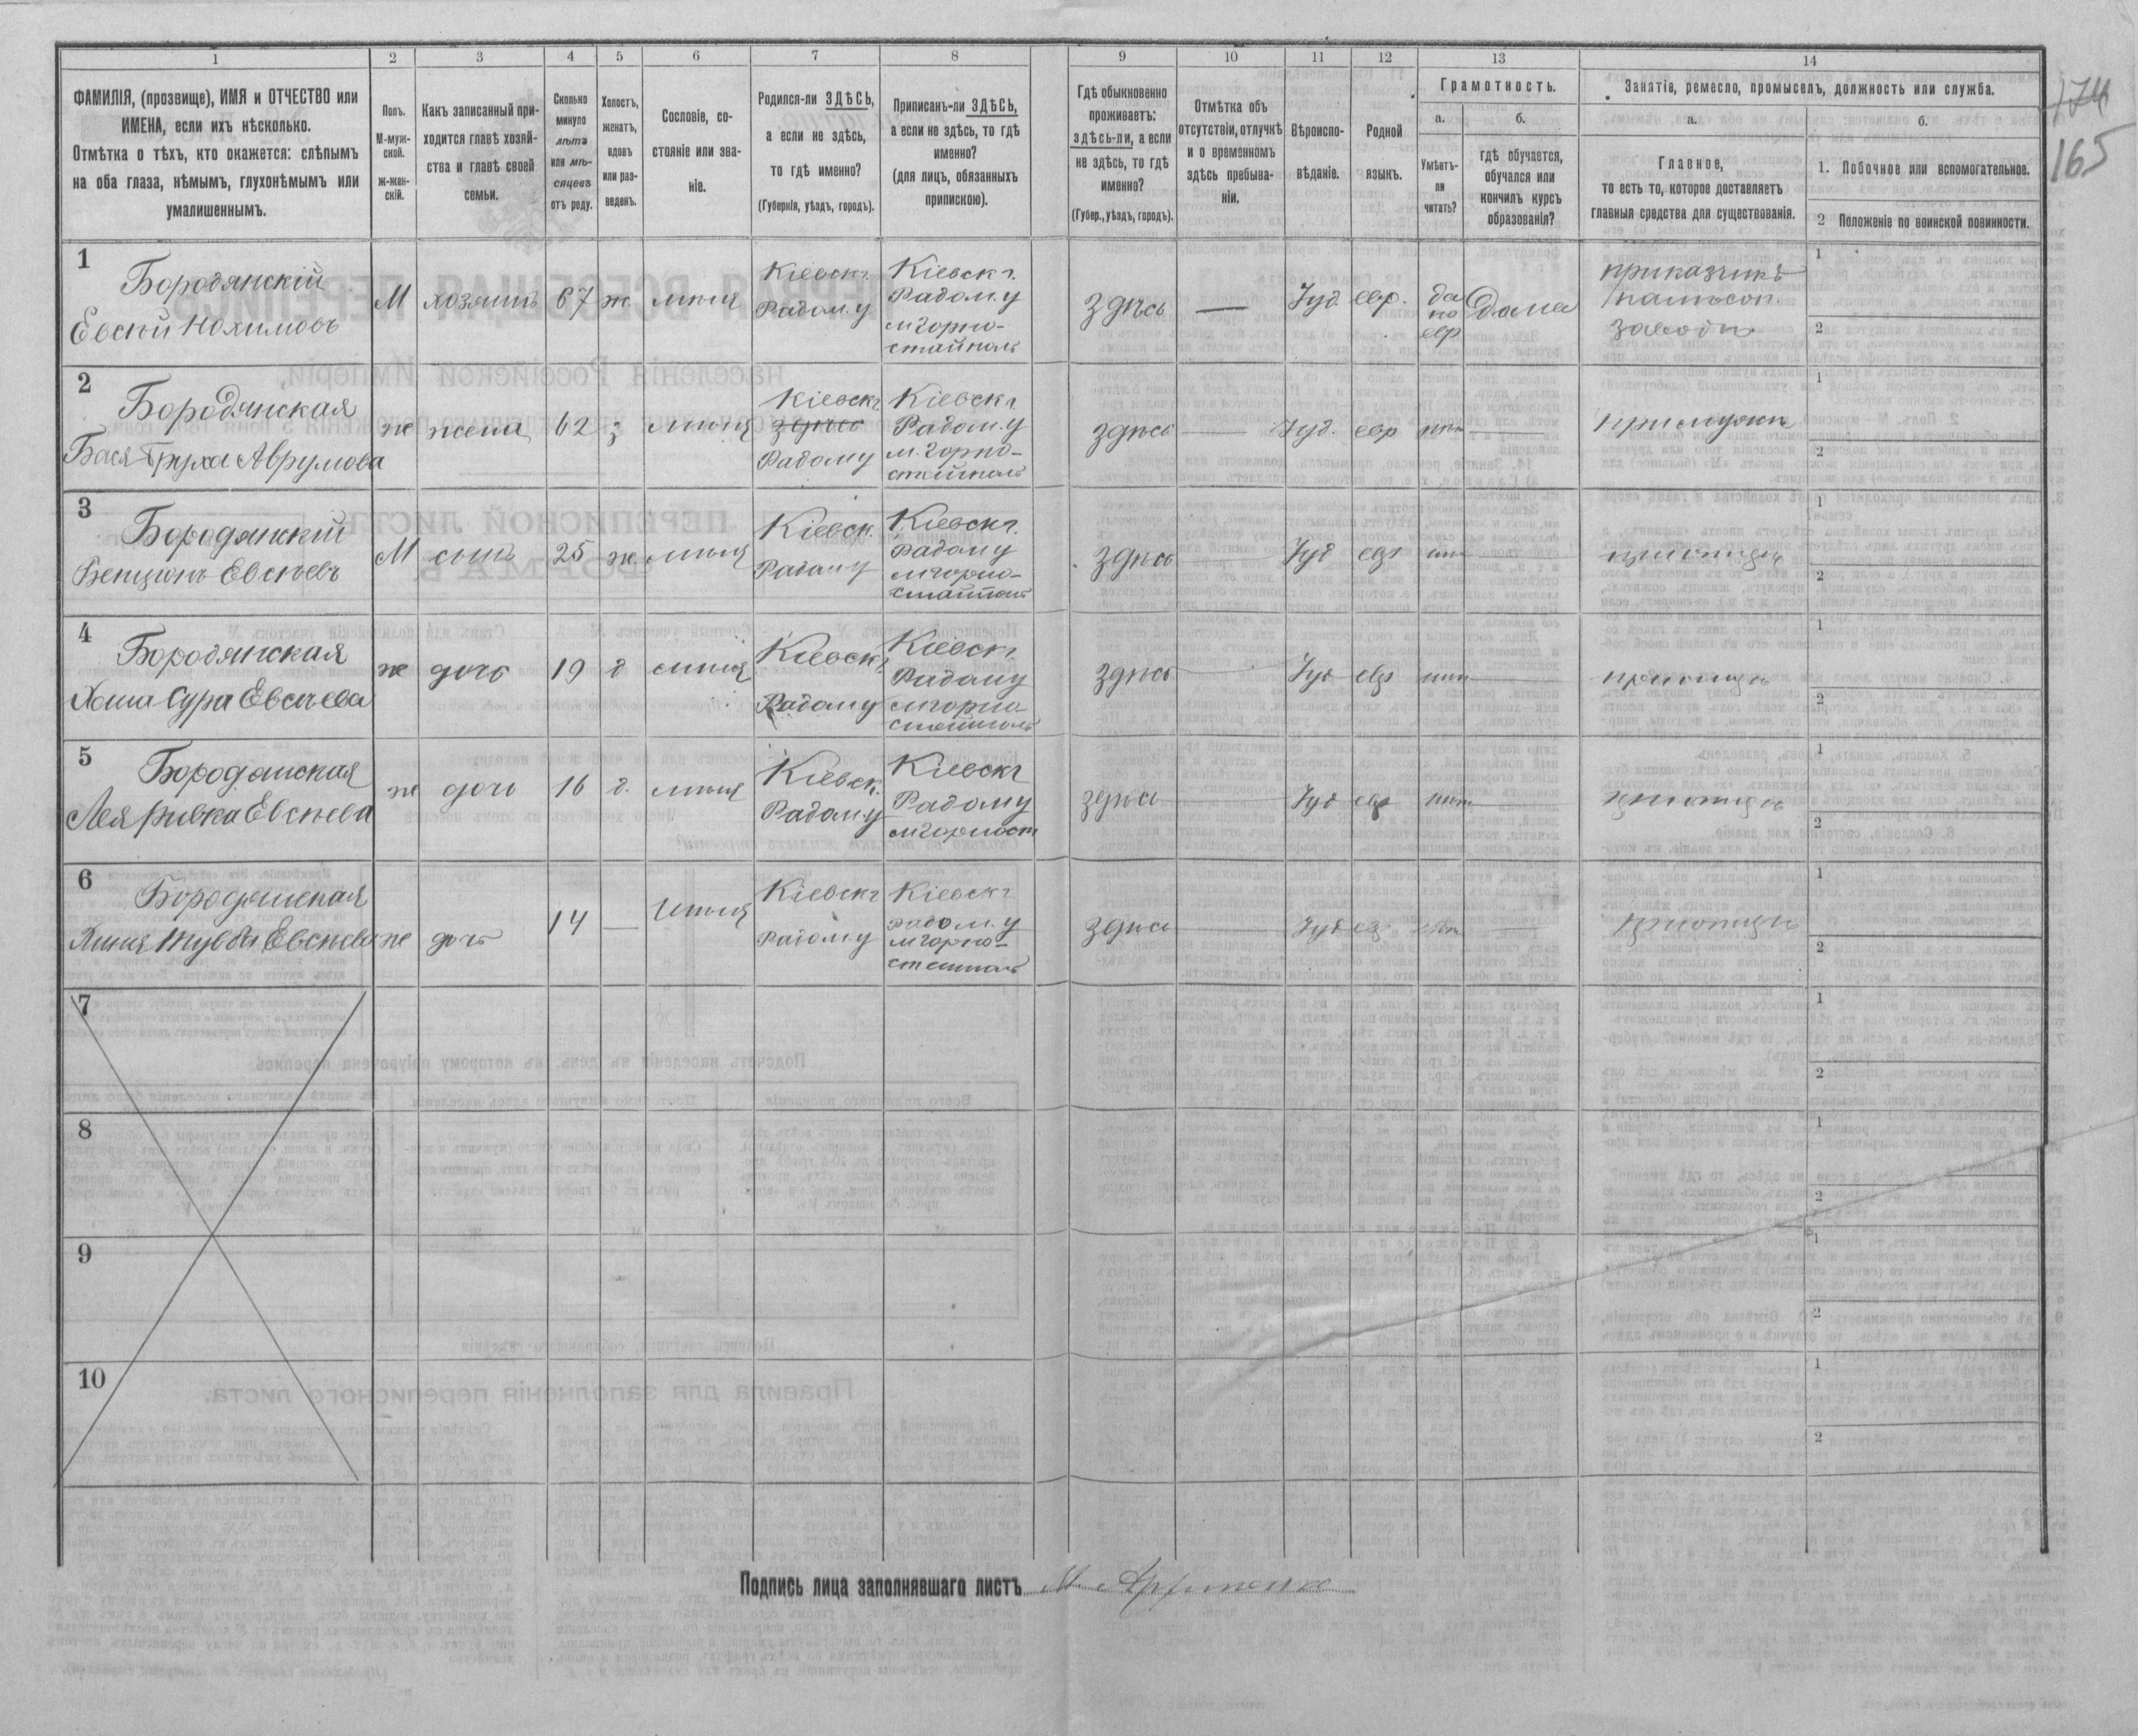 174
165
1 2 3 4 5 6 7 8 9 10 11 12 13 14
ФАМИЛІЯ, (прозвище), ИМЯ и ОТЧЕСТВО или
ИМЕНА, если ихъ нѣсколько.
Отмѣтка о тѣхъ, кто окажется: слѣпымъ
на оба глаза, нѣмымъ, глухонѣмымъ или
умалишеннымъ.
Полъ.
М-муж-
ской.
ж-жен-
скій.
Какъ записанный при-
ходится главѣ хозяй-
ства и главѣ своей
семьи.
Сколько
минуло
лѣтъ
или мѣ-
сяцевъ
отъ роду.
Холостъ,
женатъ,
вдовъ
или раз-
веденъ.
Сословіе, со-
стояніе или зва-
ніе.
Родился-ли ЗДѢСЬ,
а если не здѣсь,
то гдѣ именно?
(Губернія, уѣздъ, городъ).
Приписанъ-ли ЗДѢСЬ,
а если не здѣсь, то гдѣ
именно?
(для лицъ, обязанныхъ
припискою).
Гдѣ обыкновенно
проживаетъ:
здѣсь-ли, а если
не здѣсь, то гдѣ
именно?
(Губер., уѣздъ, городъ).
Отмѣтка объ
отсутствіи, отлучкѣ
и о временномъ
здѣсь пребыва-
ніи.
Вѣроиспо-
вѣданіе.
Родной
языкъ.
Грамотность.
а.
Умѣетъ-
ли
читать?
б.
гдѣ обучается,
обучался или
кончилъ курсъ
образованія?
Занятіе, ремесло, промыселъ, должность или служба.
а.
Главное,
то есть то, которое доставляетъ
главныя средства для существованія.
б.
1. Побочное или вспомогательное.
2 Положеніе по воинской повинности.
1
Бородянскій
Евсѣй Нохимовъ
М хозяинъ 67 ж.
Кіевск г.
Радом. у
Кіевск г.
Радом. у
м Горно-
стайполь
здѣсь — Іуд. евр.
да
по
евр
Дома
приказчикъ
завода
1
2
2
Бородянская
Бася Груха Аврумова
ж жена 62 з
Кіевск г
здѣсь
Радому
Кіевск г.
Радом. у
м. Горно-
стайполь
здѣсь — Іуд. евр нѣт —
при мужѣ
1
2
3
Бородянскій
Бенціонъ Евсѣевъ
М сынъ 25 ж.
Кіевск.
Радому
Кіевск г.
Радому
м Горно-
стайполь
здѣсь — Іуд евр нѣт —
при отцѣ
1
2
4
Бородянская
Хана Сура Евсѣева
ж дочь 19 д
Кіевск г.
Радому
Кіевск г.
Радому
м Горно
стайполь
здѣсь — Іуд евр нѣт —
при отцѣ
1
2
5
Бородянская
Лея Ривка Евсѣева
ж дочь 16 д.
Кіевск.
Радом. у
Кіевск г
Радому
м Горност
здѣсь — Іуд евр нѣт —
при отцѣ
1
2
6
Бородянская
Евсѣева ж дочь 14 —
Кіевск г
Радом. у
Кіевск г
Радом. у
м Горно-
стайполь
здѣсь — Іуд ев нѣт —
при отцѣ
1
2
7
1
2
8
1
2
9
1
2
10
1
2
Подпись лица заполнявшаго листъ М.